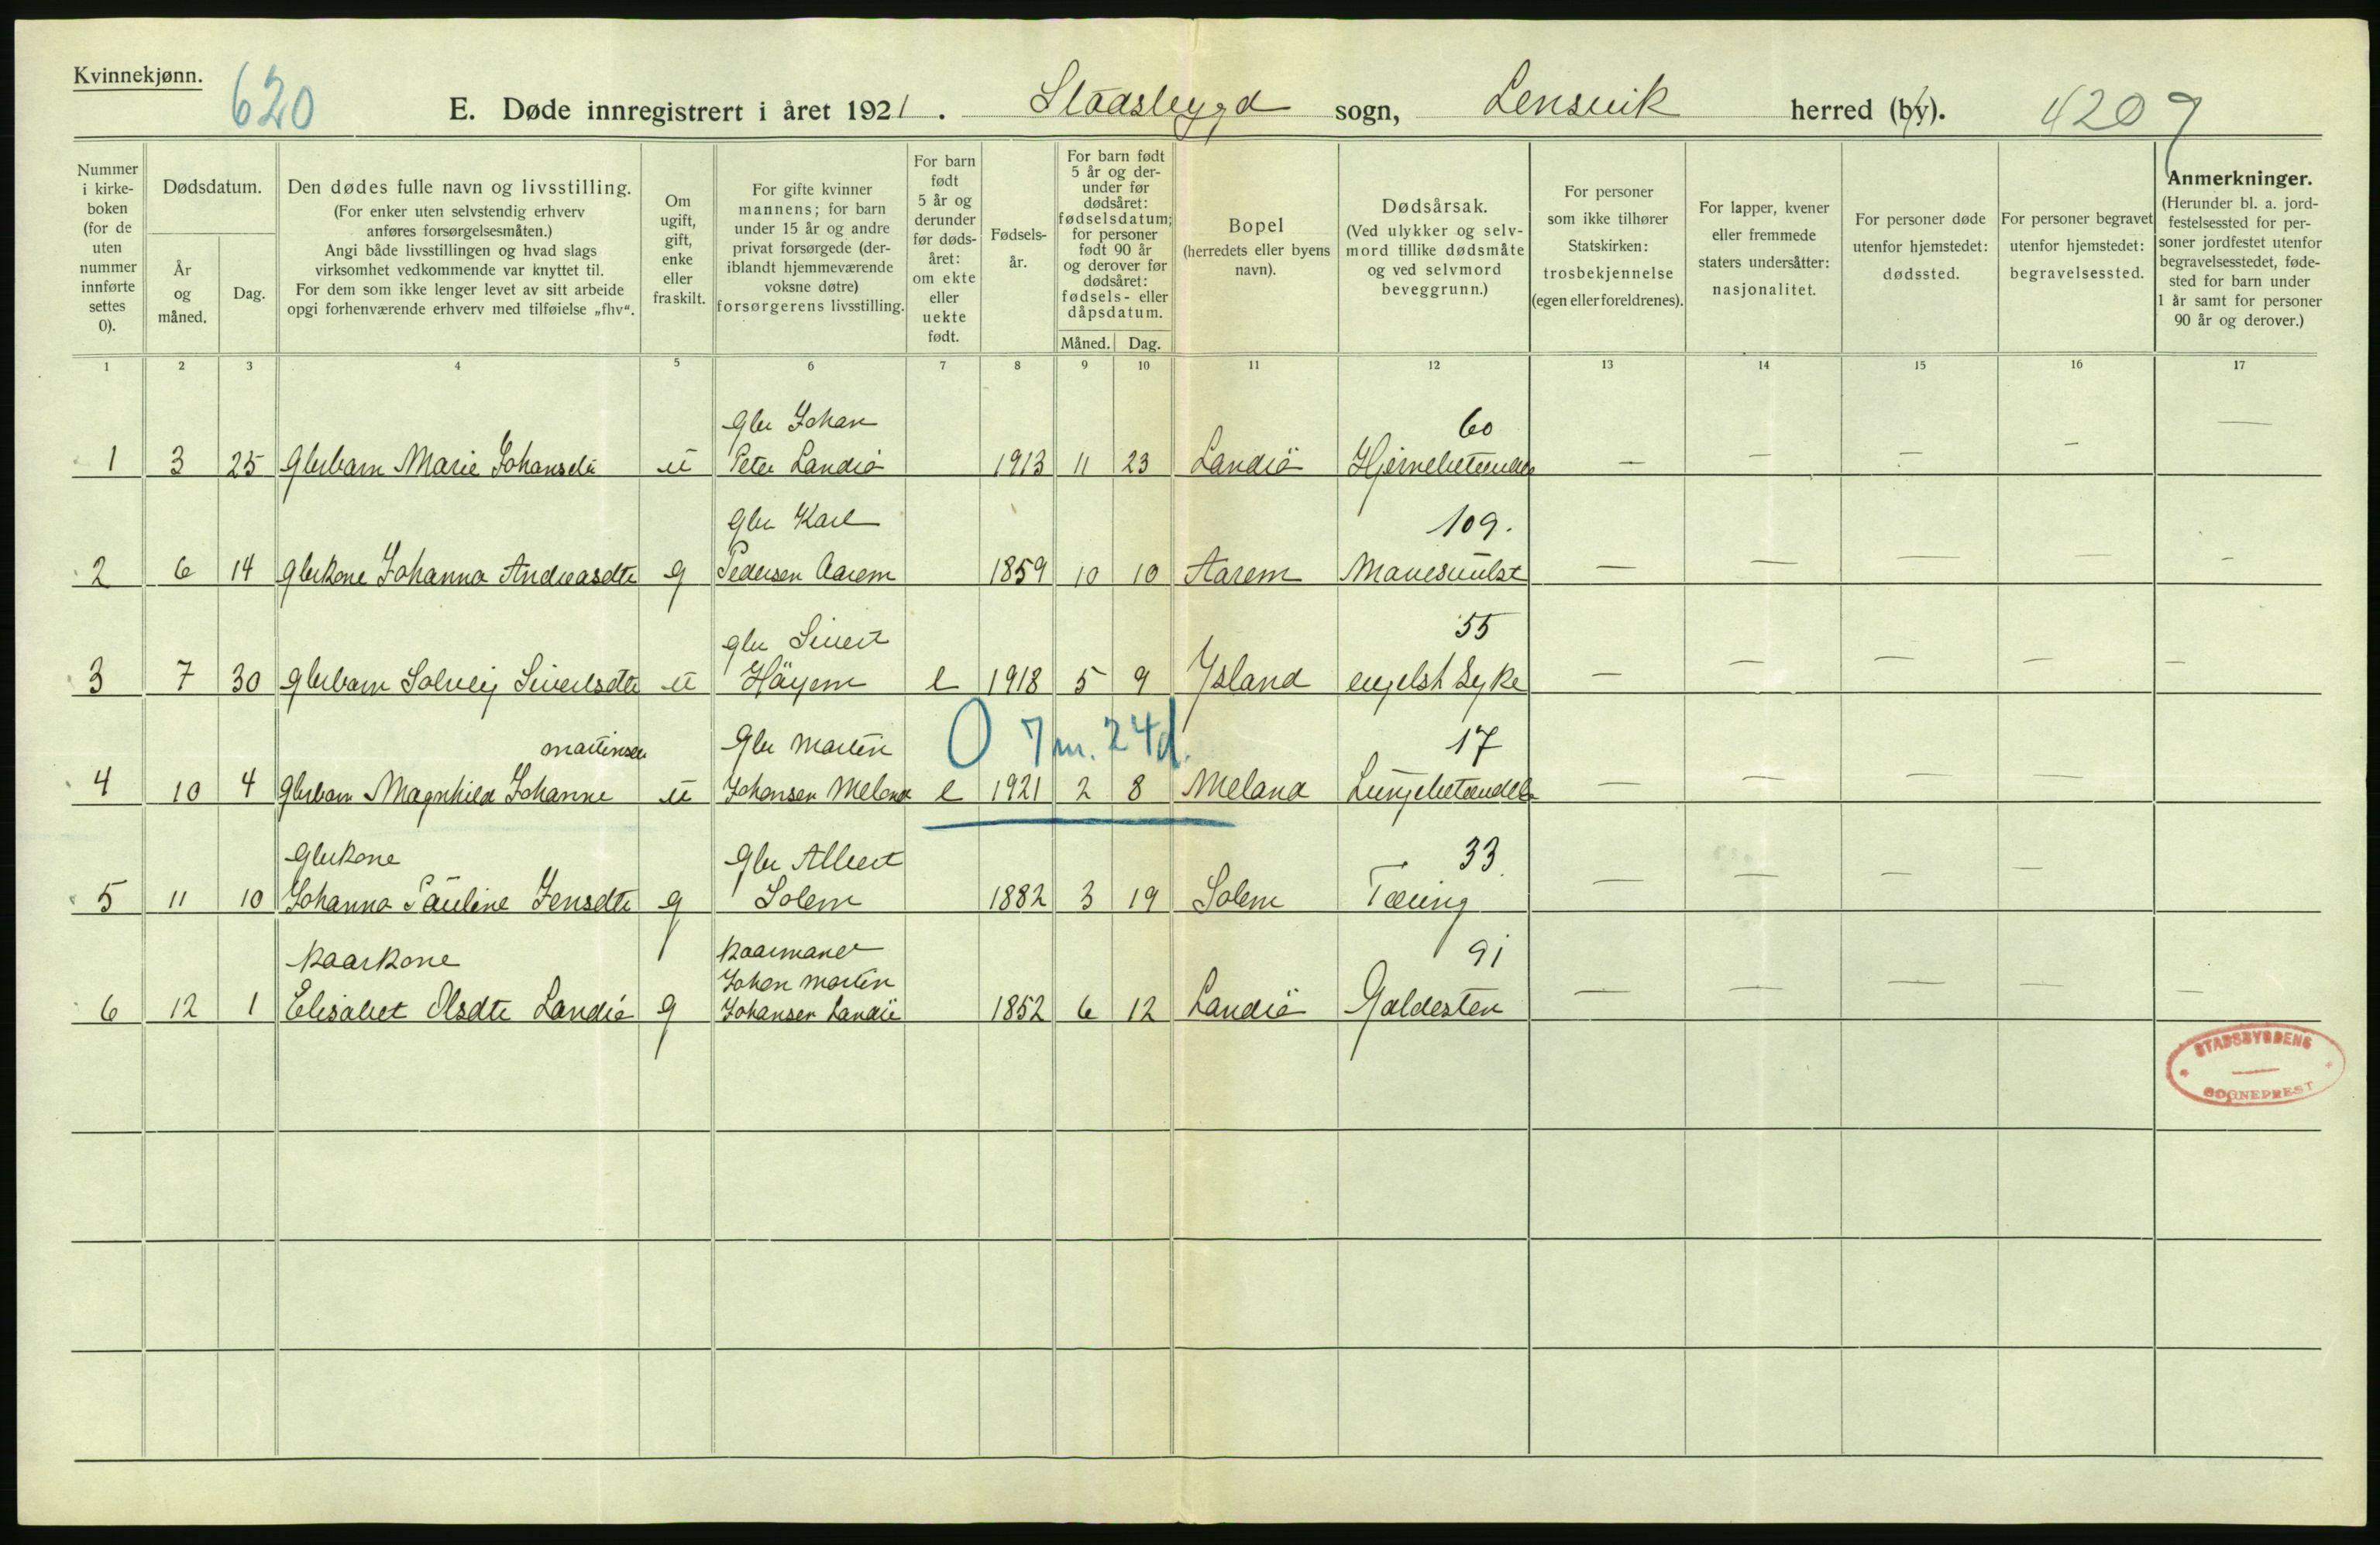 Kvinnekjønn.
620
E. Døde innregistrert i året 1921. Stadsbygd sogn, Lensvik herred (by). 4209
Nummer i kirke-boken (for de uten nummer innførte settes 0).
Dødsdatum.
År og måned.
Dag.
Den dødes fulle navn og livsstilling.
(For enker uten selvstendig erhverv anføres forsørgelsesmåten.)
Angi både livsstillingen og hvad slags virksomhet vedkommende var knyttet til.
For dem som ikke lenger levet av sitt arbeide opgi forhenværende erhverv med tilføielse „fhv“.
Om ugift, gift, enke eller fraskilt.
For gifte kvinner mannens; for barn under 15 år og andre privat forsørgede (deriblandt hjemmeværende voksne døtre) forsørgerens livsstilling.
For barn født 5 år og derunder før dødsåret: om ekte eller uekte født.
Fødsels-år.
For barn født 5 år og derunder før dødsåret: fødselsdatum; for personer født 90 år og derover før dødsåret: fødsels- eller dåpsdatum.
Måned. Dag.
Bopel (herredets eller byens navn).
Dødsårsak.
(Ved ulykker og selvmord tillike dødsmåte og ved selvmord beveggrunn.)
For personer som ikke tilhører Statskirken: trosbekjennelse (egen eller foreldrenes).
For lapper, kvener eller fremmede staters undersåtter: nasjonalitet.
For personer døde utenfor hjemstedet: dødssted.
For personer begravet utenfor hjemstedet: begravelsessted.
Anmerkninger.
(Herunder bl. a. jordfestelsessted for personer jordfestet utenfor begravelsesstedet, fødested for barn under 1 år samt for personer 90 år og derover.)
1 2 3 4 5 6 7 8 9 10 11 12 13 14 15 16 17
Gbr Johan 60
1 3 25 Gbrbarn Marie Johansdtr u Peter Landrö 1913 11 23 Landrö Hjernebetændelse — — — — —
Gbr Karl 109.
2 6 14 Gbrkone Johanna Andreasdtr g Pedersen Aarem 1859 10 10 Aarem Mavesvulst — — — — —
gbr Sivert 55
3 7 30 gbrbarn Solveig Sivertsdtr u Höyem e 1918 5 9 Ysland engelsk syke — — — — —
martinsen Gbr Martin 0 7 m. 24 d. 17
4 10 4 Gbrbarn Magnhild Johanne u Johansen Meland e 1921 2 8 Meland Lungebetændelse — — — —
Gbrkone Gbr Albert 33
5 11 10 Johanna Pauline Jensdtr g Solem 1882 3 19 Solem Tæring — — — —
Kaarkone Kaarmand 91
Johan Martin
6 12 1 Elisabet Olsdtr Landrö g Johansen Landrö 1852 6 12 Landrö Galdesten — — — — —
STADSBYGDENS
SOGNEPREST